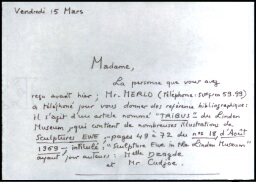 Vendredi 15 Mars
Madame,
La personne que vous avez
reçu avant hier ; Mr. MERLO (Téléphone : 59.99)
a téléphoné pour vous donner des références bibliographiques:
Il s'agit d'un article nommé "TRIBUS" du Linden
Museum, qui contient de nombreuses illustrations de
Sculptures EWE, pages 48 à 72 du nos. 18, d'Août
1969 - intitulé, "Sculpture Ewe in the Linden Museum"
ayant pour auteurs : Melle
et Mr. Cudjoe.